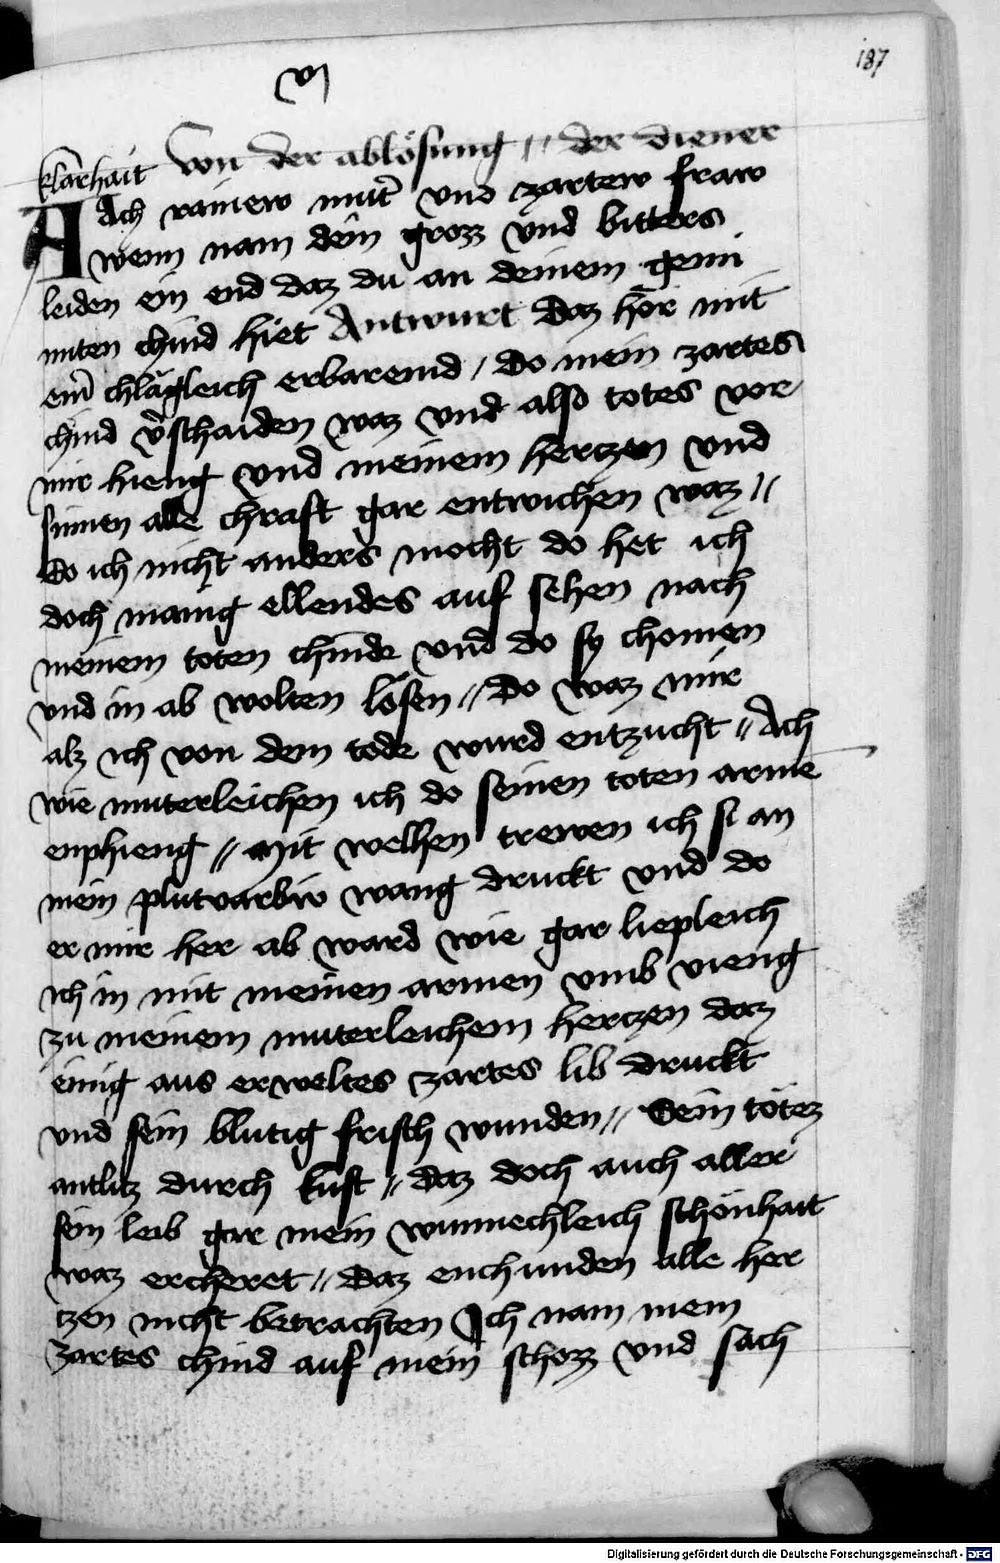 187
vj
klarhait Von der ablösung // der diener
Ach rainew mut̃ vnd zartew fraw
wenn nam dein grozz vnd bitters
leiden ein end daz du an deinem gemi
nten chind hiet Antwurt Daz hör mit
eim̃ chlägleich erbaremd / Do mein zartes
chind v̾schaiden waz vnd also totes vor
mir hieng vnd meinem hertzen vnd
sinnen alle chraft gar entwichen waz //
do ich nicht anders mocht do het ich
doch manig ellendes auf sehen nach
meinem toten chinde vnd do sy chomen
vnd in ab wolten lösen // Do waz mir
alz ich von dem tode wurd entzucht // Ach
wie muterleichen ich do seinen toten arme
enphieng // Mit welhen trewen ich si an
mein plutvarbiv wang druckt vnd do
er mir her ab ward wie gar liepleich
ich in mit meinen armen vmb vieng
zu meinem muterleichem hertzen daz
einig aus erweltes zartes lib druckt
vnd sein blutig frisch wunden // Sein tötez
antlitz durch kust // daz doch auch aller
sein leib gar mein wunnechleich schönhait
waz ercheret // Daz enchunden alle her
tzen nicht betrachten Ich nam mein
zartes chind auf mein schozz vnd sach
Digitalisierung gefördert durch die Deutsche Forschungsgemeinschaft - DFG